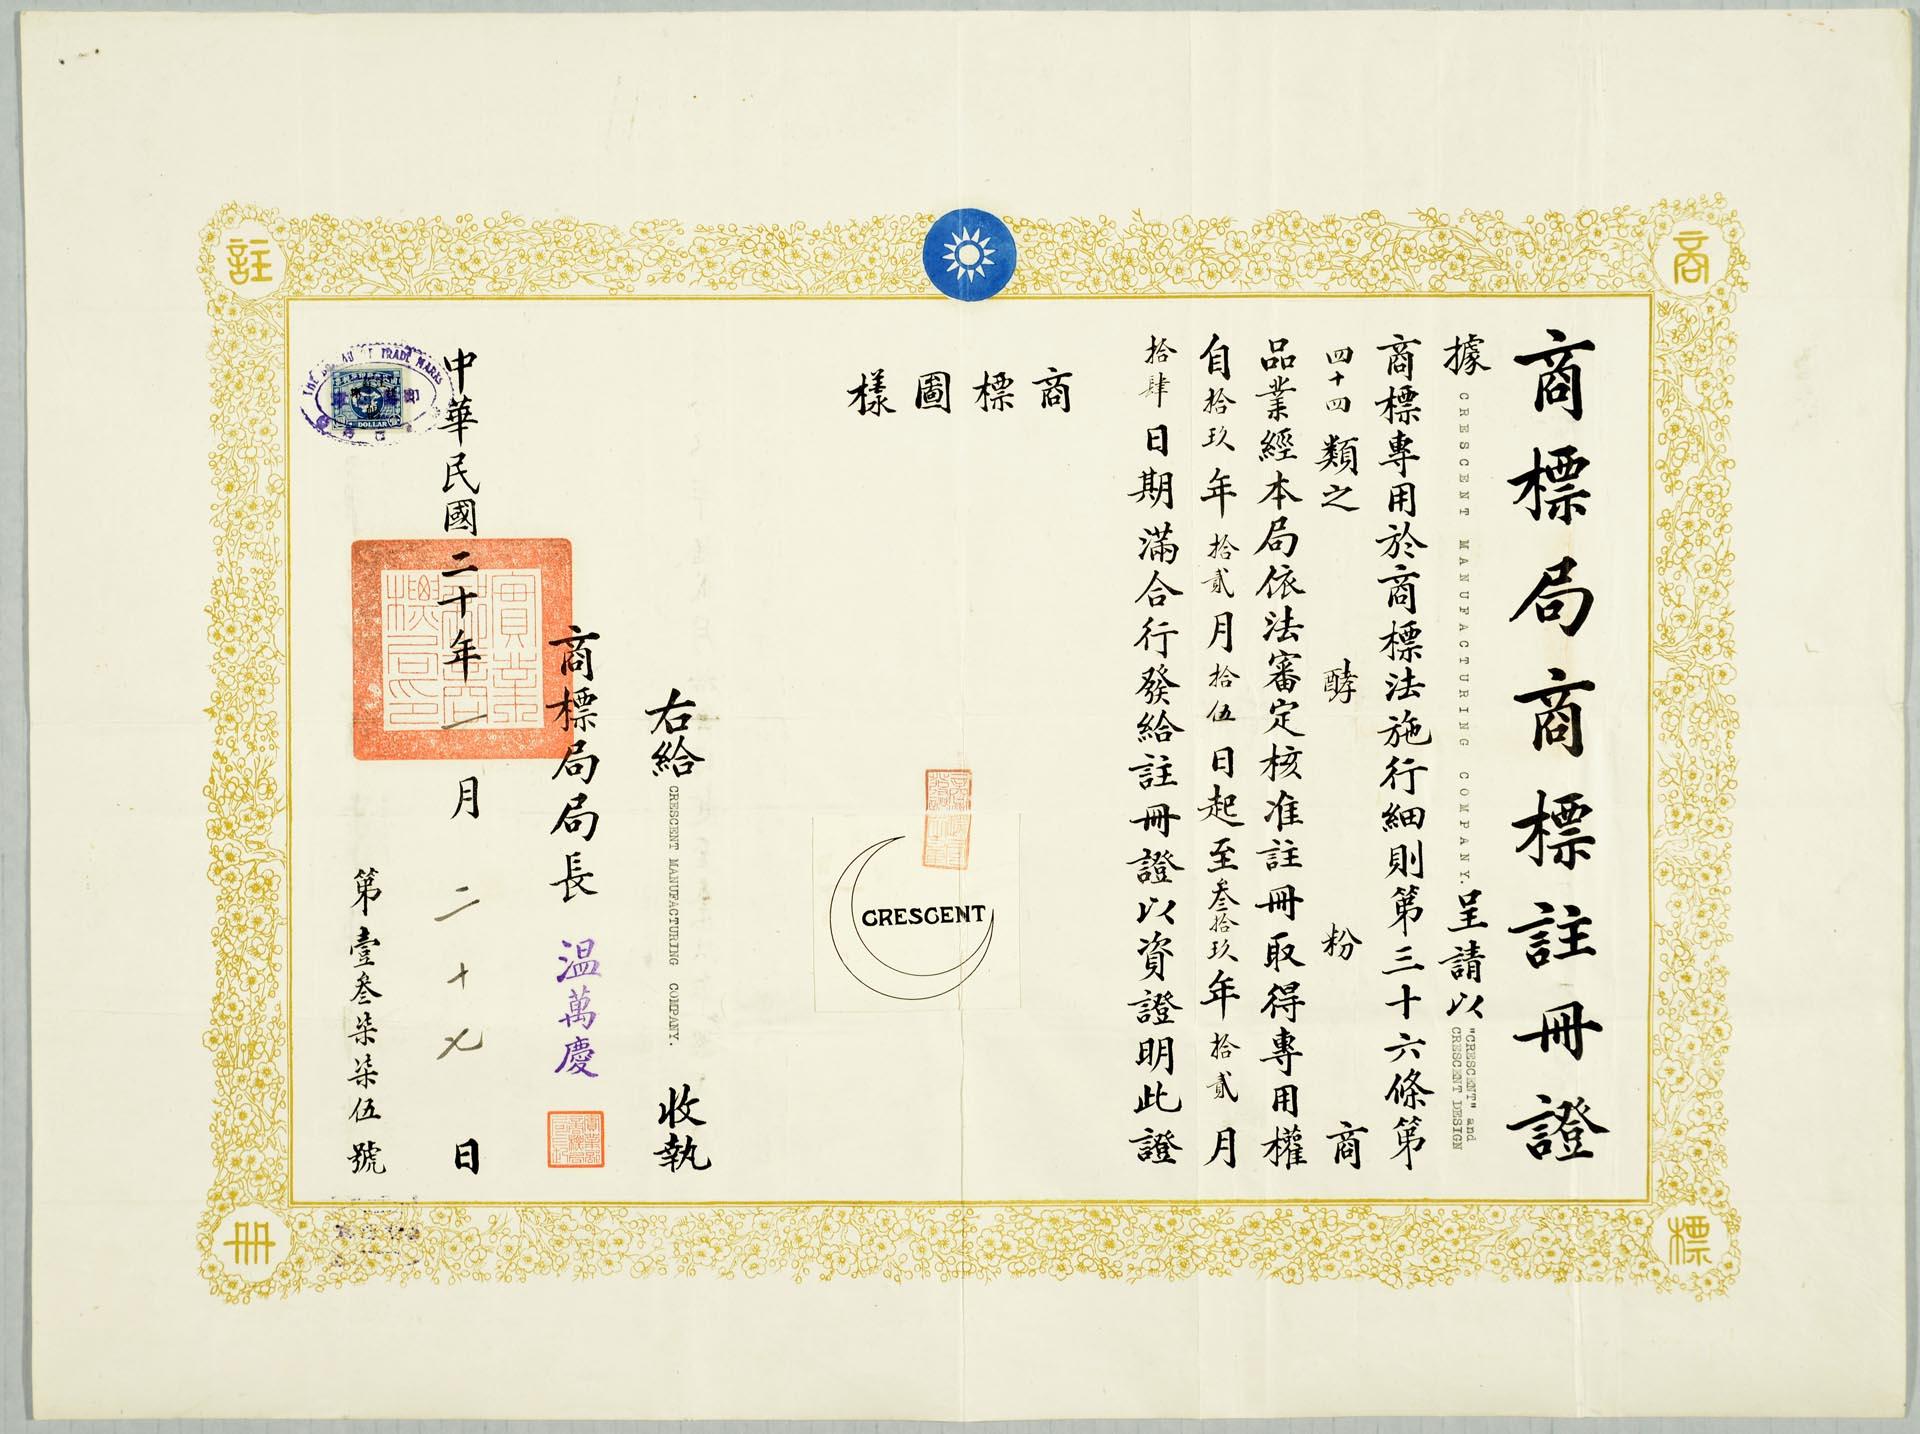 商標註冊
商標局商標註冊證
據 CRESCENT MANUFACTURING COMPANY. 呈請以 "CRESCENT" and CRESCENT DESIGN
商標專用於商標法施行細則第三十六條第
四十四類之 酵 粉 商
品業經本局依法審定核准註冊取得專用權
自拾玖年拾貳月拾伍日起至叁拾玖年拾貳月
拾肆日期滿合行發給註冊證以資證明此證
商標圖樣
CRESCENT
右給 CRESCENT MANUFACTURING COMPANY. 收執
商標局局長 温萬慶
中華民國二十年一月二十七日
實業部商標局印
第壹叁柒柒伍號
THE BUREAU OF TRADE MARKS
1 DOLLAR